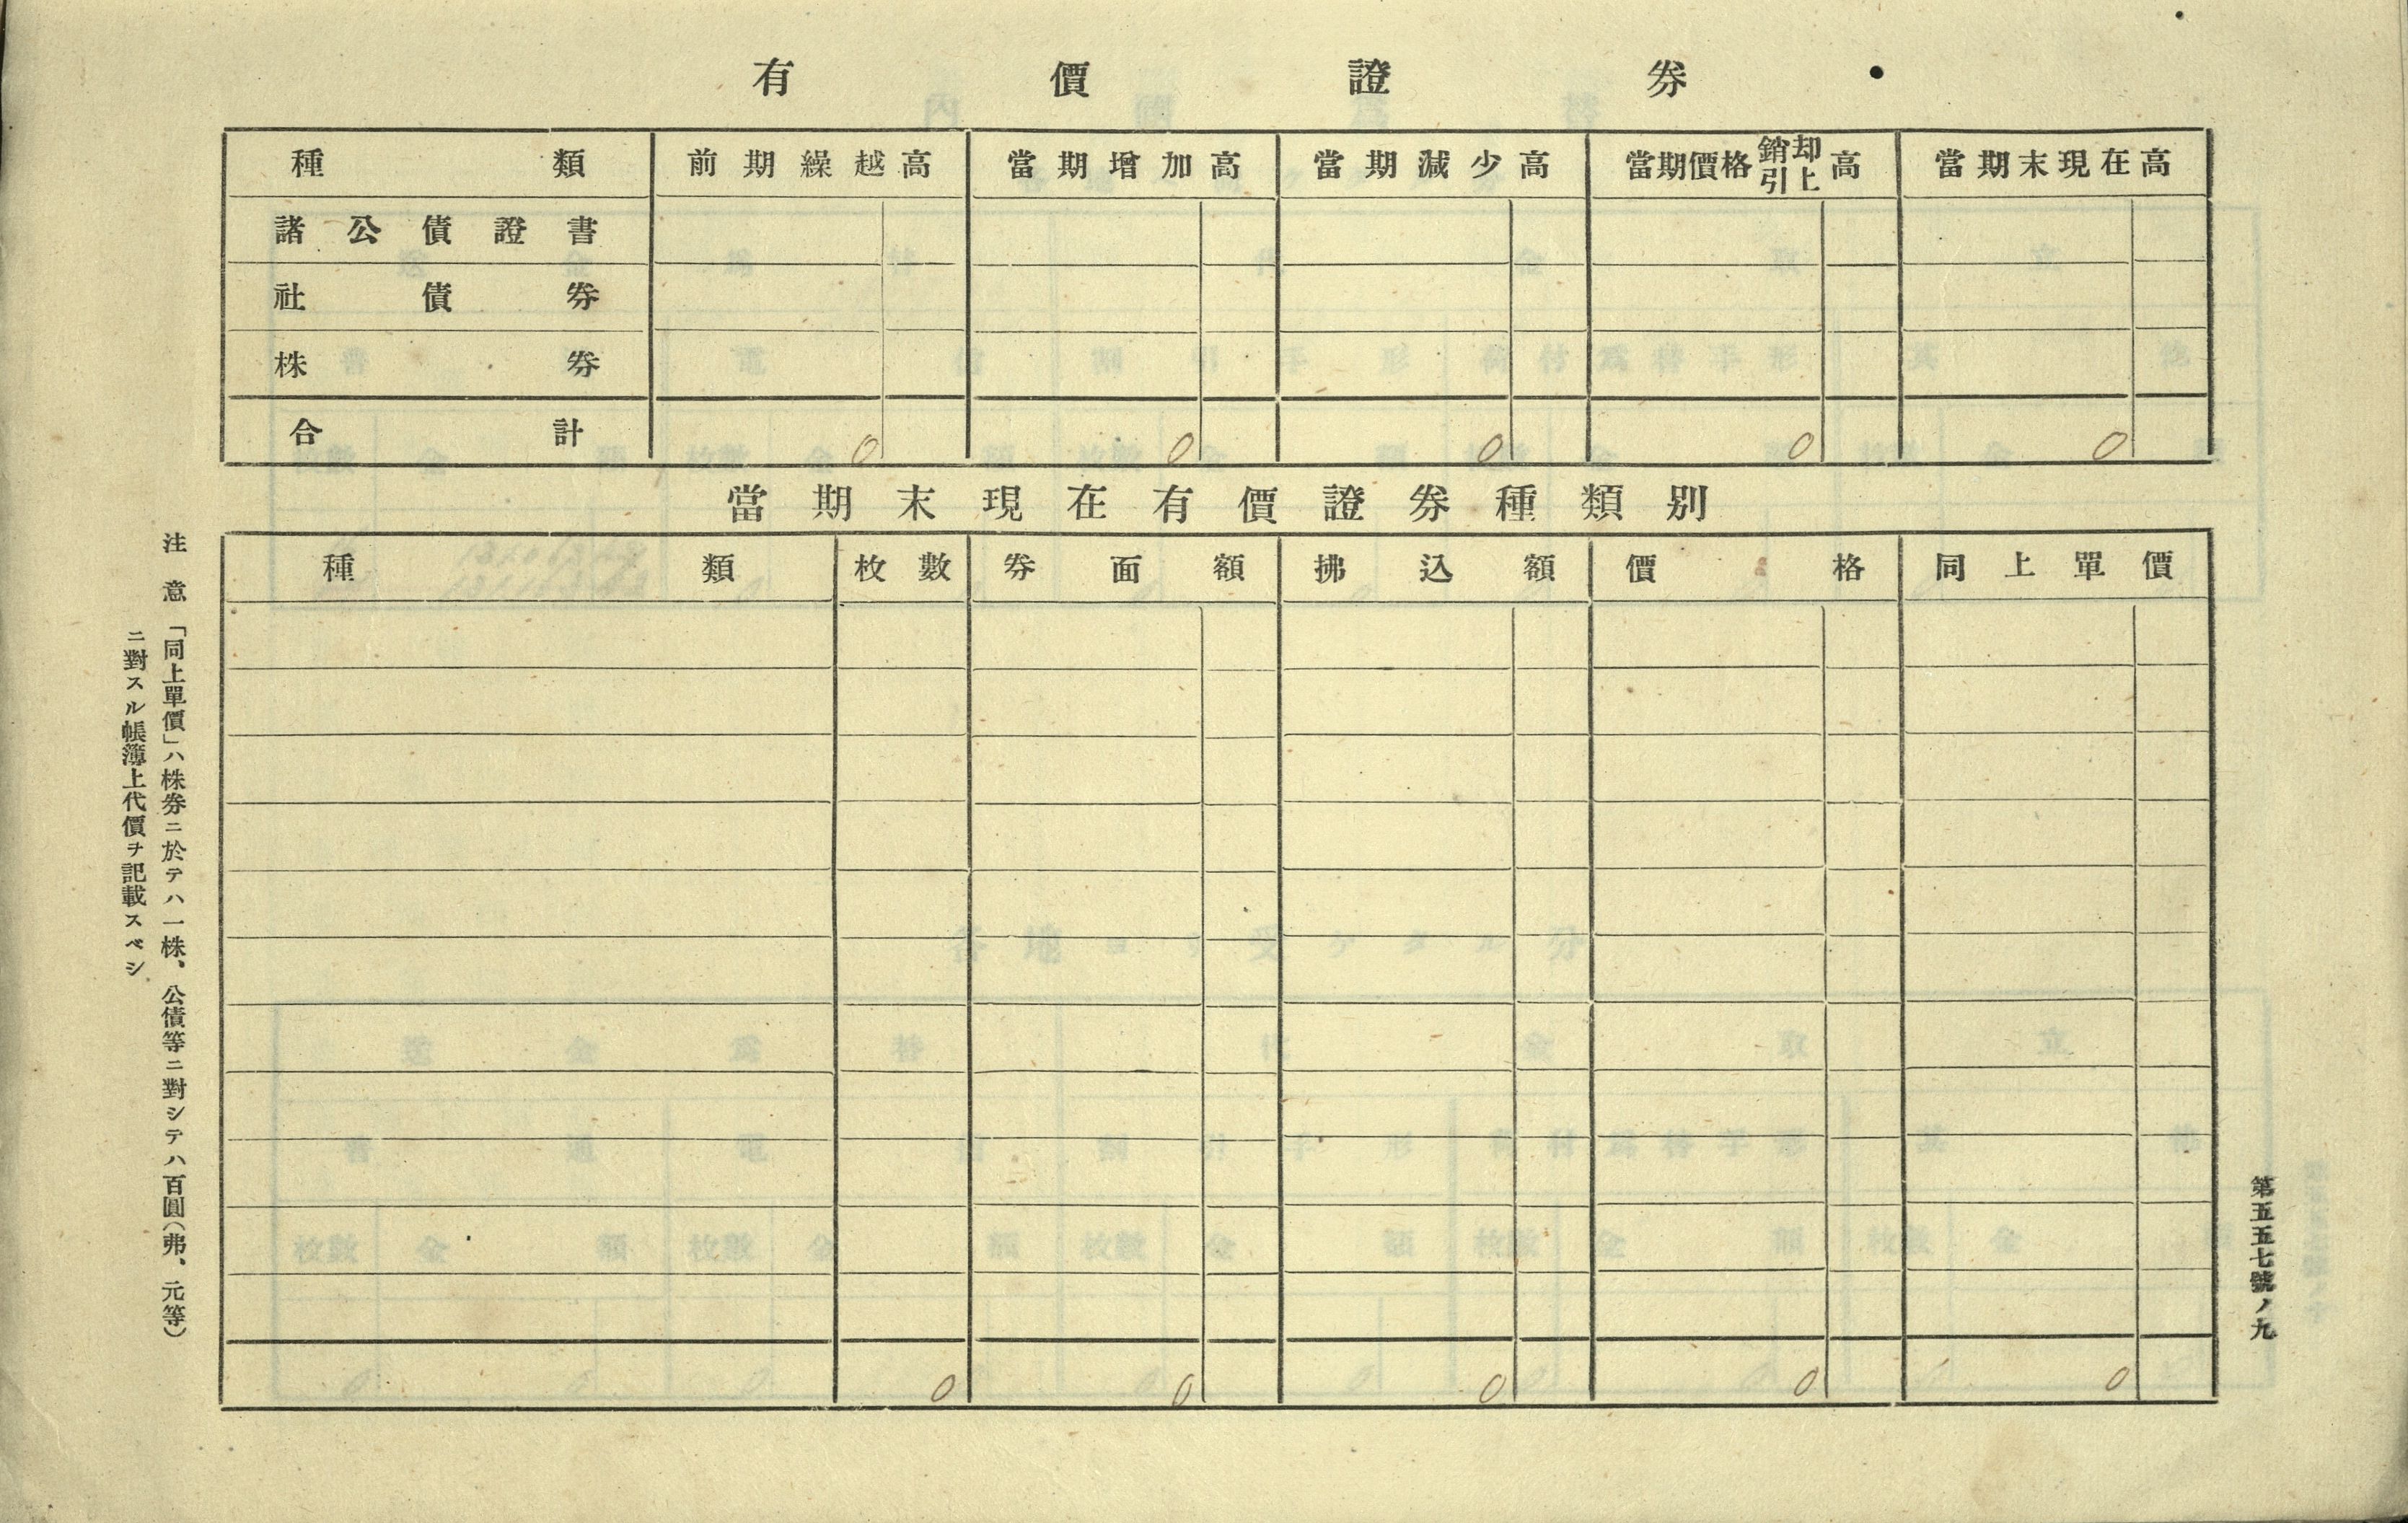 有價證券
種類 前期繰越高 當期增加高 當期減少高 當期價格銷却引上高 當期末現在高
諸公債證書
社債券
株券
合計 0 0 0 0 0
當期末現在有價證券種類別
種類 枚數 券面額 拂込額 價格 同上單價
0 0 0 0 0
注意 「同上單價」ハ株券ニ於テハ一株、公債等ニ對シテハ百圓(弗、元等)
ニ對スル帳簿上代價ヲ記載スベシ
第五五七號ノ九